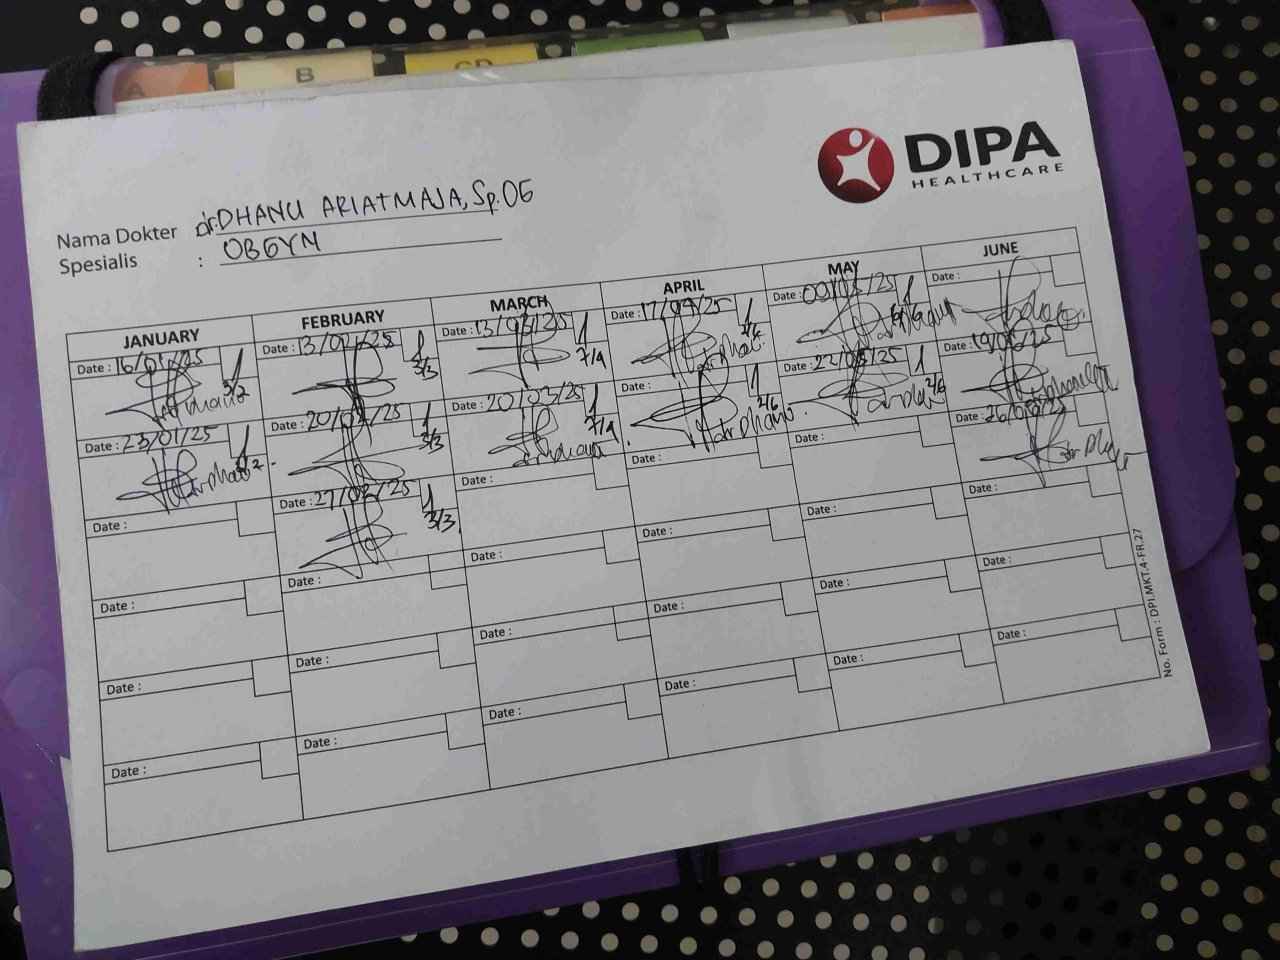 A
B
CD
DIPA
HEALTHCARE
Nama Dokter dr.DHANU ARIATMAJA, Sp.OG
Spesialis : OBGYN
JANUARY FEBRUARY MARCH APRIL MAY JUNE
Date : 16/01/25 Date : 13/02/25 Date : 13/03/25 Date : 17/04/25 Date : Date :
3/2 3/3 7/4 2/6
Date : 23/01/25 Date : 20/02/25 Date : 20/03/25 Date : Date : 22/05/25 19/06/25
3/2 3/3 7/4 2/6 2/6
Date : Date : 27/02/25 Date : Date : Date : Date : 26/06/25
3/3
Date : Date : Date : Date : Date : Date :
Date : Date : Date : Date : Date : Date :
Date : Date : Date : Date : Date : Date :
No. Form : DPI.MKT.4-FR.27